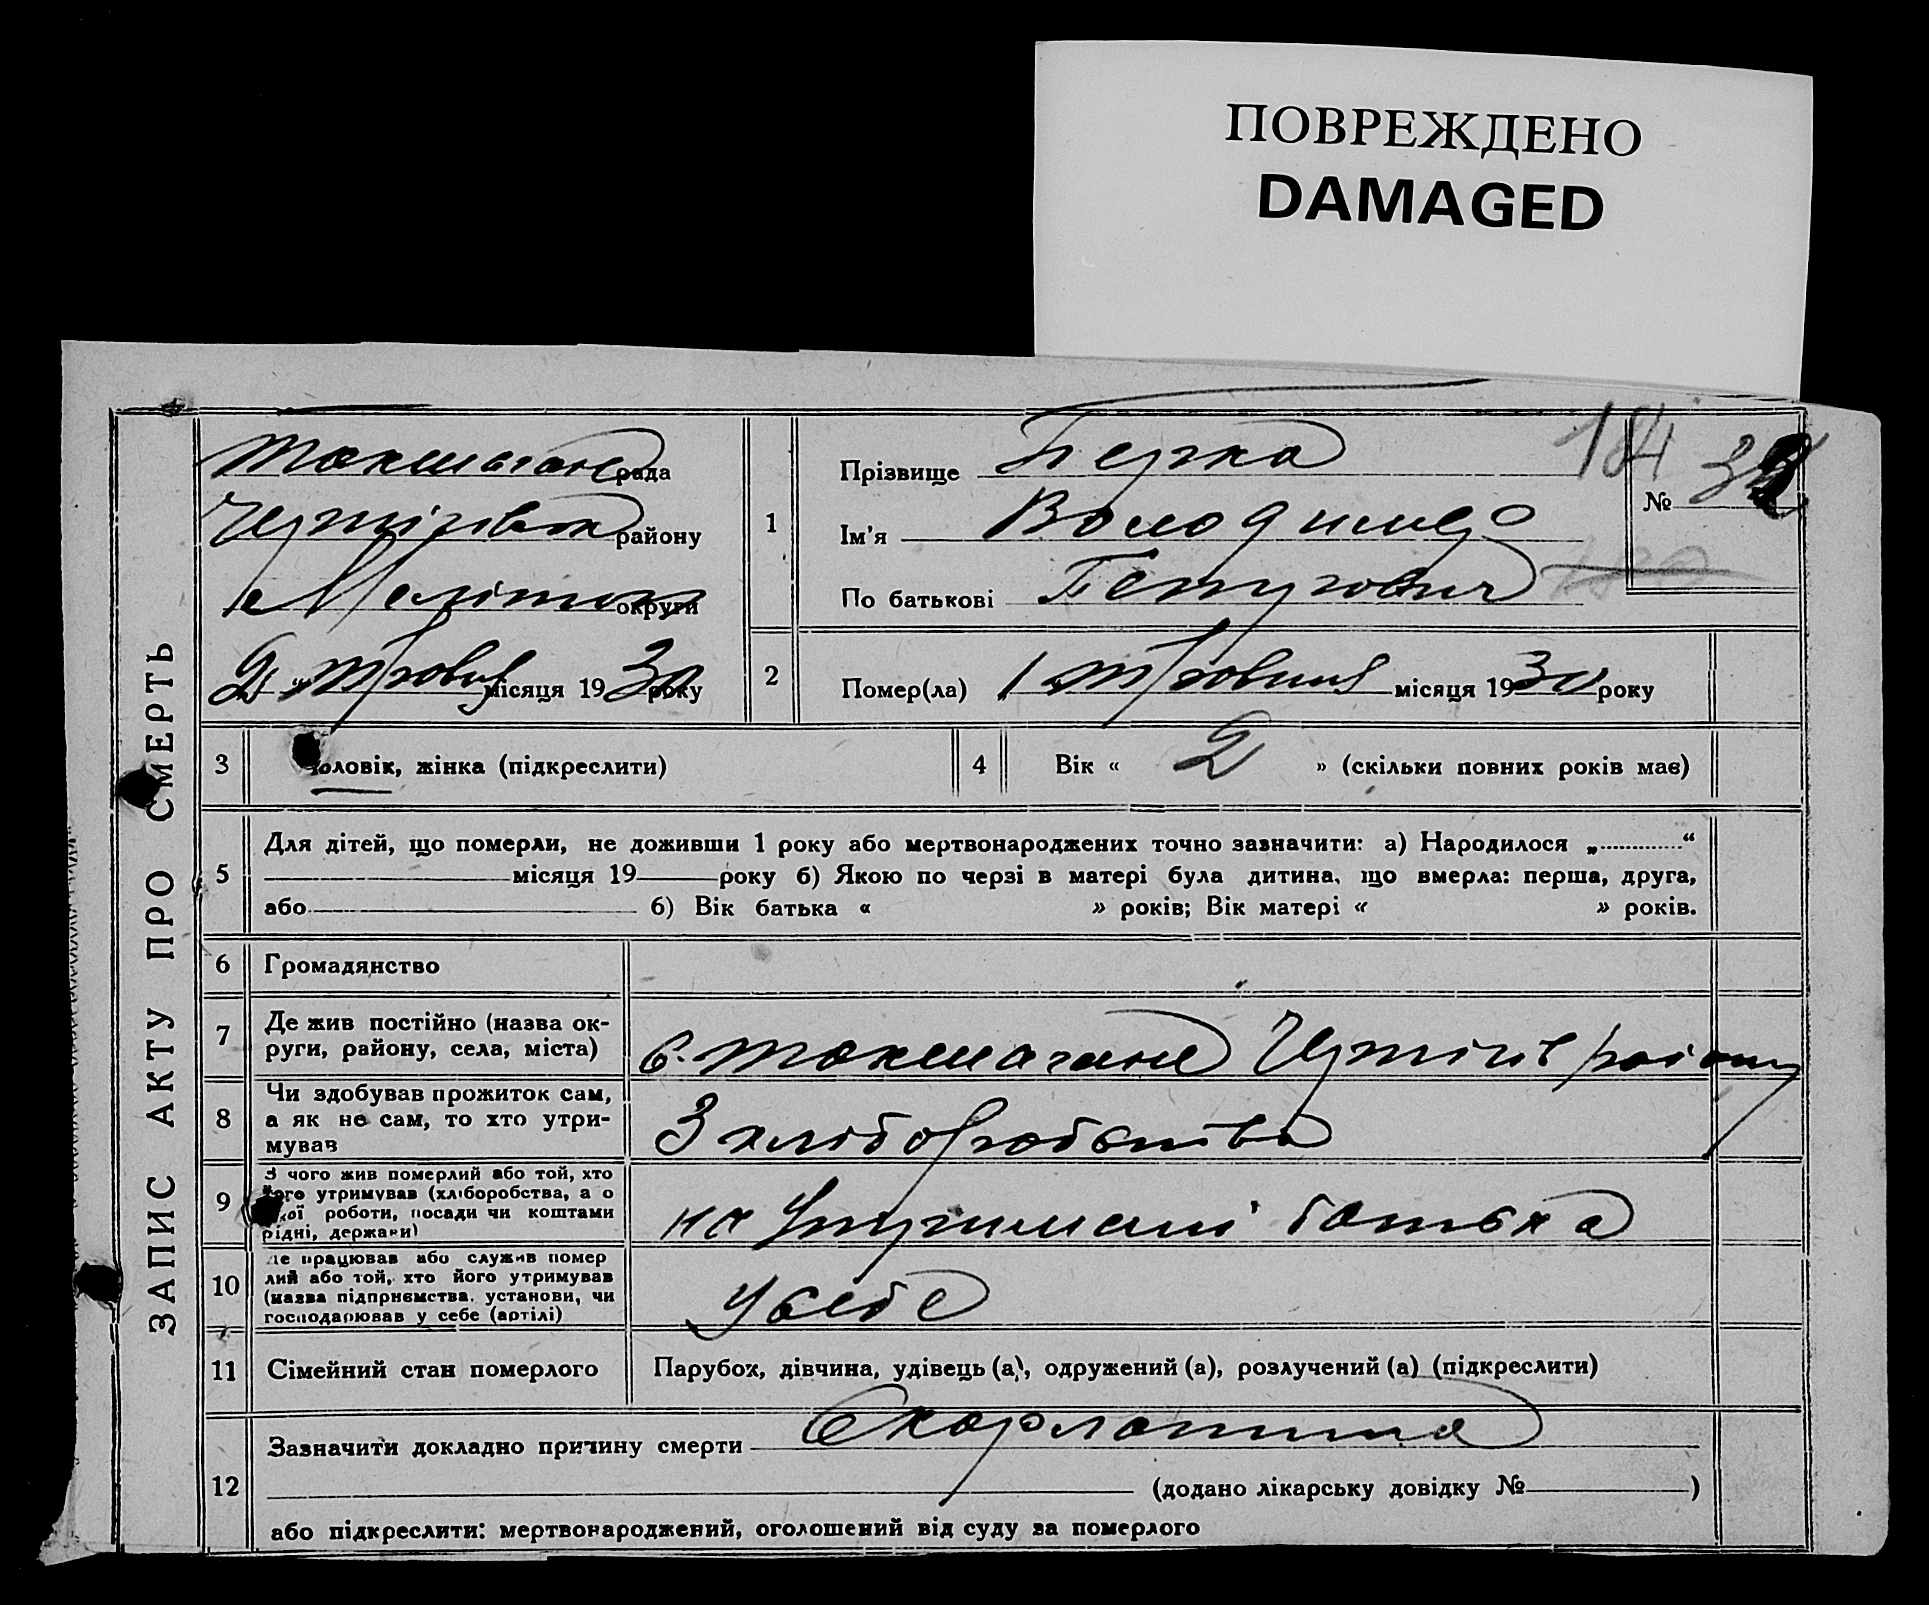 ПОВРЕЖДЕНО
DAMAGED
ЗАПИС АКТУ ПРО СМЕРТЬ
рада
району
округи
2 " травня місяця 1930 року
1 Прізвище
Ім'я Володимир
По батькові Петрович
184
№ 32
2 Помер(ла) 1 " травня місяця 1930 року
3 чоловік, жінка (підкреслити)
4 Вік « 2 » (скільки повних років має)
5 Для дітей, що померли, не доживши 1 року або мертвонароджених точно зазначити: а) Народилося „ “
місяця 19 року б) Якою по черзі в матері була дитина, що вмерла: перша, друга,
або 6) Вік батька « » років; Вік матері « » років.
6 Громадянство
7 Де жив постійно (назва ок-
руги, району, села, міста)
с. Чернігів району
8 Чи здобував прожиток сам,
а як не сам, то хто утри-
мував
З хліборобства
9 З чого жив померлий або той, хто
його утримував (хліборобства, а о
якої роботи, посади чи коштами
рідні, держави)
на утриманні батька
10 Де працював або служив помер
лий або той, хто його утримував
(назва підприємства, установи, чи
господарював у себе (артілі)
У себе
11 Сімейний стан померлого
Парубок, дівчина, удівець (а), одружений (а), розлучений (а) (підкреслити)
12 Зазначити докладно причину смерти Скорлатина
(додано лікарську довідку № )
або підкреслити: мертвонароджений, оголошений від суду за померлого